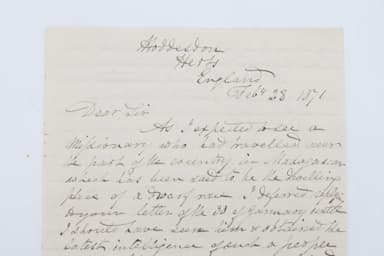 Hoddesdon
Herts
England
Feby 28 1871
Dear Sir
As I expected to see a
Missionary who had travelled near
the part of the country in Madagascar
which has been said to be the dwelling
place of a dwarf race I deferred
your letter of the 23 of January until
I should have seen him & obtained the
latest intelligence of such a people